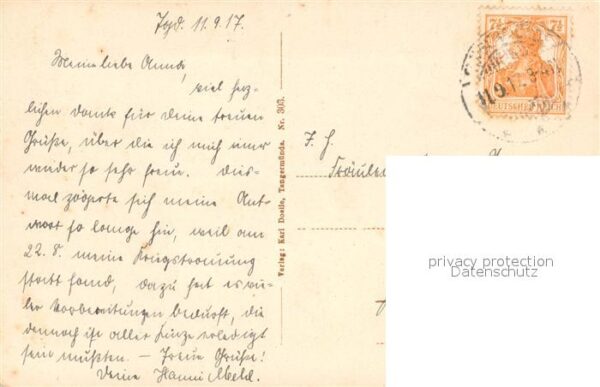 Tgd. 11.9.17.
Meine liebe Anna,
viel herz-
lichen Dank für Deine treuen
Grüße, über die ich mich immer
wieder so sehr freue. Dies-
mal zögerte sich meine Ant-
wort so lange hin, weil am
22.8. meine Kriegstrauung
statt fand, dazu hat es vie-
ler Vorbereitungen bedurft, die
dennoch in aller Kürze erledigt
sein mußten. – Treue Grüße!
Deine Hanni
Verlag: Karl Dostle, Tangermünde. Nr. 303.
7½ 7½
DEUTSCHES REICH
11.9.17
F. H.
Fräulein
privacy protection
Datenschutz